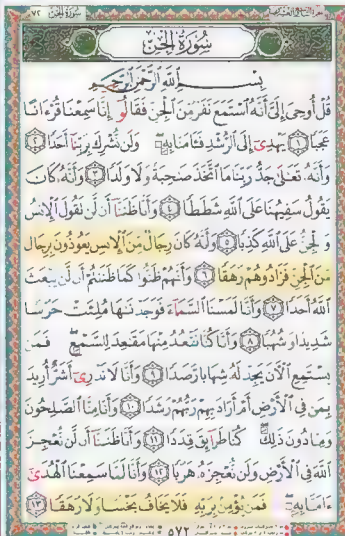 سورة الجن ٧٢
سُورَةُ الجِنِّ
بِسْمِ اللَّهِ الرَّحْمَٰنِ الرَّحِيمِ
قُلْ أُوحِيَ إِلَيَّ أَنَّهُ اسْتَمَعَ نَفَرٌ مِّنَ الْجِنِّ فَقَالُوا إِنَّا سَمِعْنَا قُرْءَانًا
عَجَبًا ١ يَهْدِي إِلَى الرُّشْدِ فَـَٔامَنَّا بِهِ وَلَن نُّشْرِكَ بِرَبِّنَا أَحَدًا ٢
وَأَنَّهُ تَعَٰلَىٰ جَدُّ رَبِّنَا مَا اتَّخَذَ صَٰحِبَةً وَلَا وَلَدًا ٣ وَأَنَّهُ كَانَ
يَقُولُ سَفِيهُنَا عَلَى اللَّهِ شَطَطًا ٤ وَأَنَّا ظَنَنَّا أَن لَّن تَقُولَ الْإِنسُ
وَالْجِنُّ عَلَى اللَّهِ كَذِبًا ٥ وَأَنَّهُ كَانَ رِجَالٌ مِّنَ الْإِنسِ يَعُوذُونَ بِرِجَالٍ
مِّنَ الْجِنِّ فَزَادُوهُمْ رَهَقًا ٦ وَأَنَّهُمْ ظَنُّوا كَمَا ظَنَنتُمْ أَن لَّن يَبْعَثَ
اللَّهُ أَحَدًا ٧ وَأَنَّا لَمَسْنَا السَّمَاءَ فَوَجَدْنَٰهَا مُلِئَتْ حَرَسًا
شَدِيدًا وَشُهُبًا ٨ وَأَنَّا كُنَّا نَقْعُدُ مِنْهَا مَقَٰعِدَ لِلسَّمْعِ فَمَن
يَسْتَمِعِ الْآنَ يَجِدْ لَهُ شِهَابًا رَّصَدًا ٩ وَأَنَّا لَا نَدْرِي أَشَرٌّ أُرِيدَ
بِمَن فِي الْأَرْضِ أَمْ أَرَادَ بِهِمْ رَبُّهُمْ رَشَدًا ١٠ وَأَنَّا مِنَّا الصَّٰلِحُونَ
وَمِنَّا دُونَ ذَٰلِكَ كُنَّا طَرَائِقَ قِدَدًا ١١ وَأَنَّا ظَنَنَّا أَن لَّن نُّعْجِزَ
اللَّهَ فِي الْأَرْضِ وَلَن نُّعْجِزَهُ هَرَبًا ١٢ وَأَنَّا لَمَّا سَمِعْنَا الْهُدَىٰ
ءَامَنَّا بِهِ فَمَن يُؤْمِن بِرَبِّهِ فَلَا يَخَافُ بَخْسًا وَلَا رَهَقًا ١٣
٥٧٢